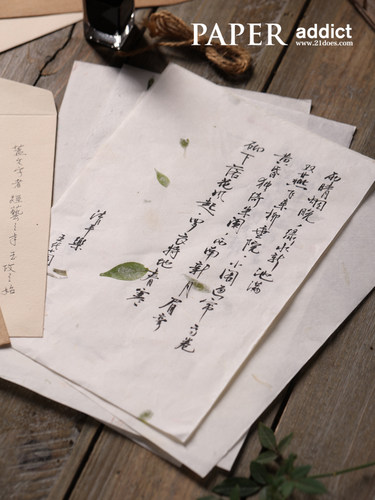 PAPER addict
www.21does.com
雨晴烟晚，绿水新池满
双燕飞来垂柳院，小阁画帘高卷
黄昏独倚朱阑，西南新月眉弯
砌下落花风起，罗衣特地春寒
清平樂